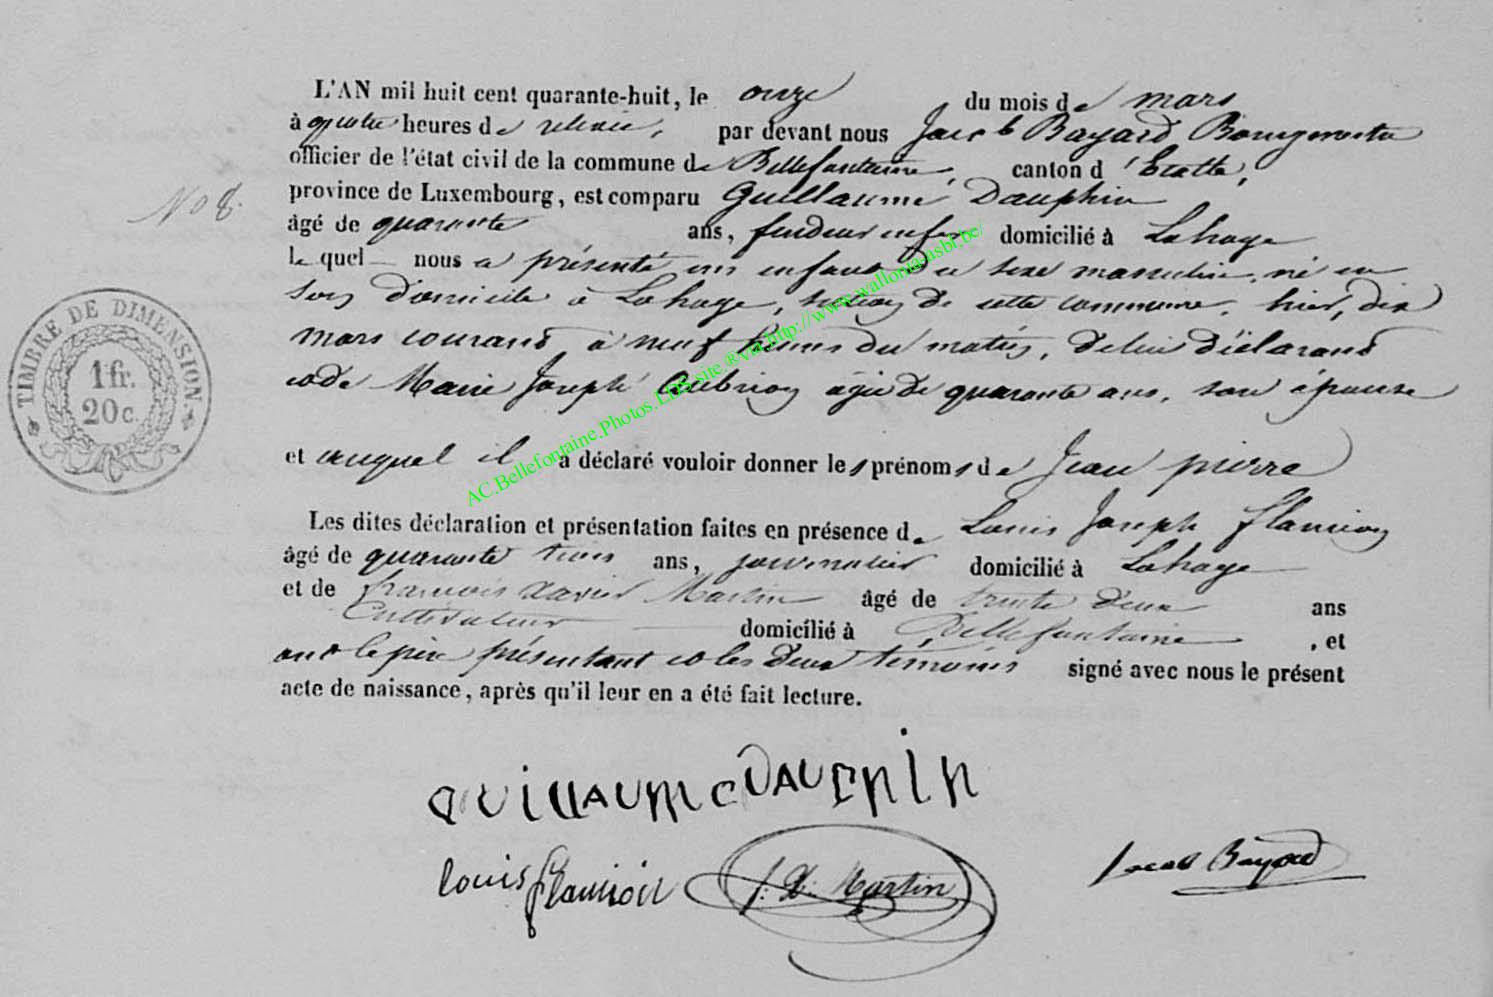 L'AN mil huit cent quarante-huit, le onze du mois de mars
à quatre heures de relevée, par devant nous Jacob Bayard Bourgmestre
officier de l'état civil de la commune de Bellefontaine, canton d'Etalle,
No 8.
province de Luxembourg, est comparu Guillaume Dauphin
âgé de quarante ans, fendeur en fer domicilié à Lahage
le quel nous a présenté un enfant du sexe masculin, né en
son domicile à Lahage, section de cette commune, hier, dix
mars courant, à neuf heures du matin, de lui déclarant
et de Marie Joseph Aubrion agée de quarante ans, son épouse
et auquel il a déclaré vouloir donner les prénoms de Jean pierre
Les dites déclaration et présentation faites en présence de Louis Joseph flamion
âgé de quarante trois ans, journalier domicilié à Lahage
et de francois Xavier Martin âgé de trente deux ans
Cultivateur domicilié à Bellefontaine, et
ont le père présentant et les deux témoins signé avec nous le présent
acte de naissance, après qu'il leur en a été fait lecture.
TIMBRE DE DIMENSION
1 fr.
20 c.
AC.Bellefontaine.Photos.LDS.site.®via.http://www.wallonia.asbl.be/
GUILLAUMe DAUPhin
Louis flamion
f. X. Martin
Jacob Bayard